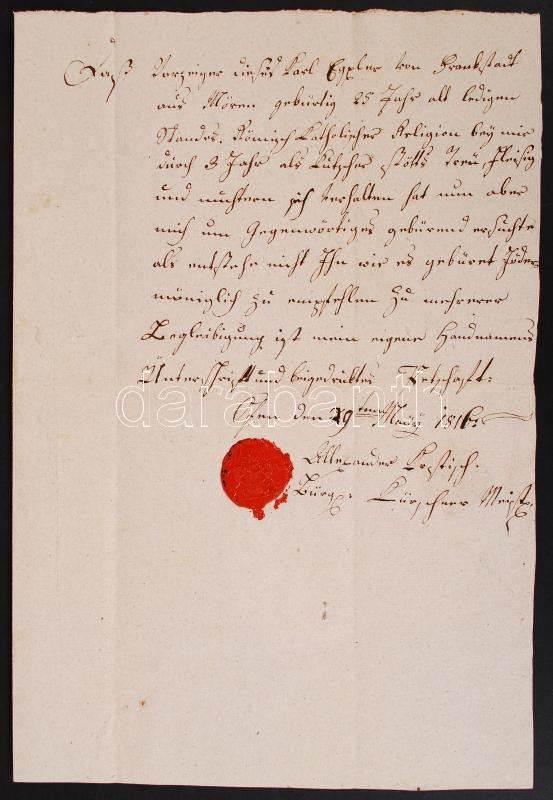 Daß Vorzeiger dieses Karl Eppler von Frankstadt
aus Mören gebürtig 25 Jahr alt ledigen
Standes, Römisch Catholischer Religion bey mir
durch 3 Jahr als Kutscher stätts Treu, fleisig
und nuchtern sich verhalten hat nun aber
mich um Gegenwörtiges gebürend ersuchte
als entstehe nicht Ihn wie es gebüret Jöder=
möniglich zu empfehlen zu mehrerer
Begleibigung ist mein eigene Handnamens
Unterschrift und beigedruktes Petschaft:
Ofen den 29ten May 1816:
Allexander
Bürgl: Kürschner Meist.
darabanth